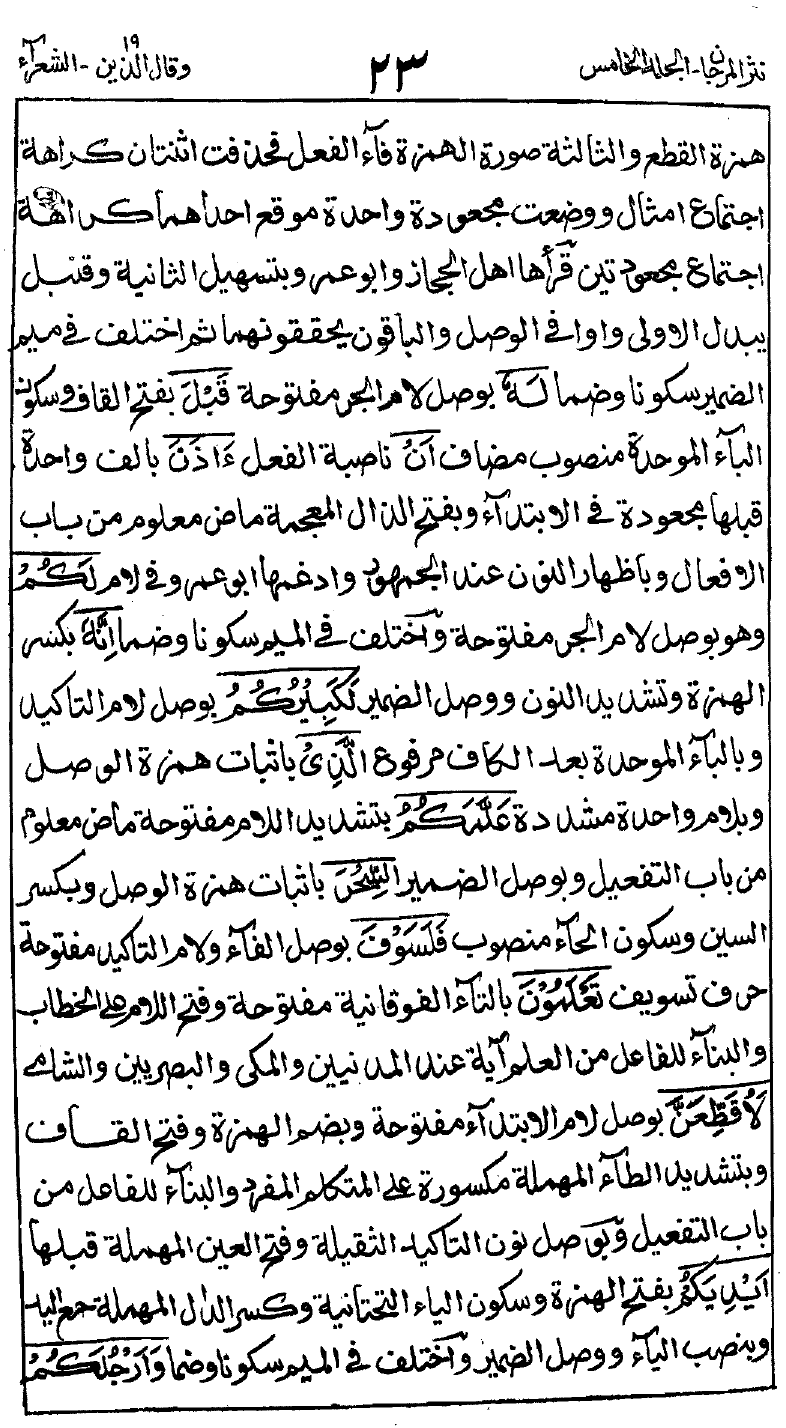 نثر المرجان - المجلد الخامس ٢٣ وقال الذين ١٩ - الشعرآء
همزة القطع والثالثة صورة الهمزة فآء الفعل فحذفت اثنتان كراهة
اجتماع امثال ووضعت مجعودة واحدة موقع احداهما كراهة
اجتماع مجعودتين قرأها اهل الحجاز وابو عمرو بتسهيل الثانية وقنبل
يبدل الاولى واوا في الوصل والباقون يحققونهما ثم اختلف في ميم
الضمير سكونا وضما لَهٗ بوصل لام الجر مفتوحة قَبْلَ بفتح القاف وسكون
البآء الموحدة منصوب مضاف اَنْ ناصبة الفعل ءَاذَنَ بالف واحدة
قبلها مجعودة في الابتدآء وبفتح الذال المعجمة ماض معلوم من باب
الافعال وباظهار النون عند الجمهور وادغمها ابو عمرو في لام لَكُمْ
وهو بوصل لام الجر مفتوحة واختلف في الميم سكونا وضما اِنَّهٗ بكسر
الهمزة وتشديد النون ووصل الضمير لَكَبِيْرُكُمُ بوصل لام التاكيد
وبالبآء الموحدة بعد الكاف مرفوع الَّذِىْ باثبات همزة الوصل
وبلام واحدة مشددة عَلَّمَكُمُ بتشديد اللام مفتوحة ماض معلوم
من باب التفعيل وبوصل الضمير السِّحْرَ باثبات همزة الوصل وبكسر
السين وسكون الحآء منصوب فَلَسَوْفَ بوصل الفآء ولام التاكيد مفتوحة
حرف تسويف تَعْلَمُوْنَ بالتآء الفوقانية مفتوحة وفتح اللام على الخطاب
والبنآء للفاعل من العلم آية عند المدنيين والمكى والبصريين والشامے
لَاُقَطِّعَنَّ بوصل لام الابتدآء مفتوحة وبضم الهمزة وفتح القاف
وبتشديد الطآء المهملة مكسورة على المتكلم المفرد والبنآء للفاعل من
باب التفعيل وبوصل نون التاكيد الثقيلة وفتح العين المهملة قبلها
اَيْدِيَكُمْ بفتح الهمزة وسكون الياء التحتانية وكسر الدال المهملة جمع اليد
وبنصب اليآء ووصل الضمير واختلف في الميم سكونا وضما وَاَرْجُلَكُمْ